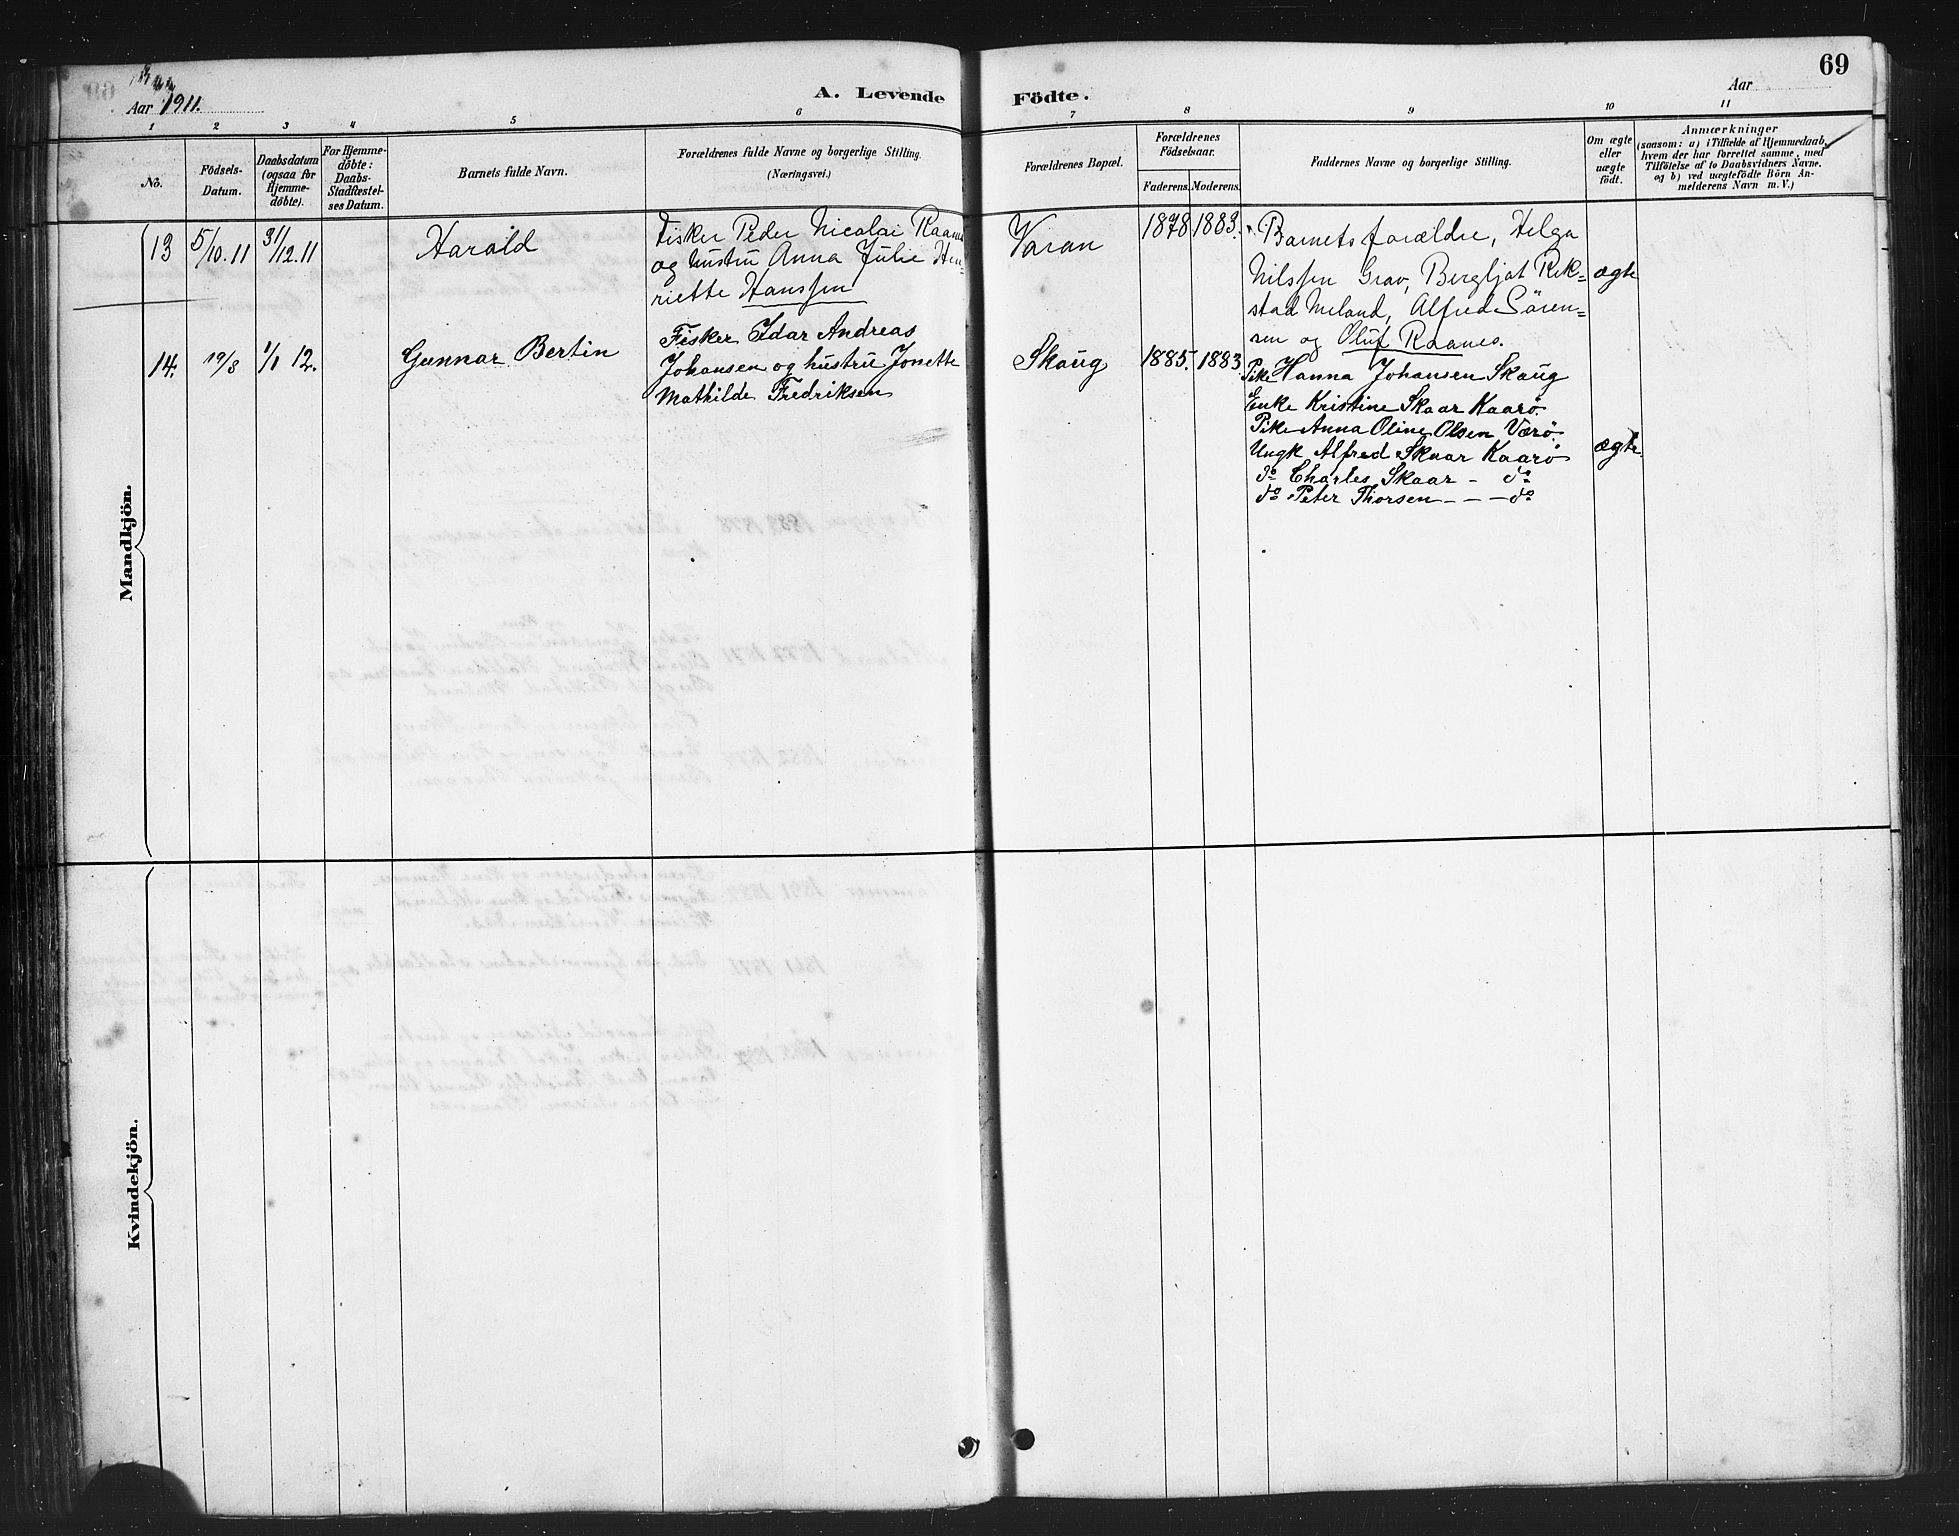 69
Aar 1911.
A. Levende Födte.
Aar
1 2 3 4 5 6 7 8 9 10 11
No.
Födsels-
Datum.
Daabsdatum
(ogsaa for
Hjemme-
döbte).
For Hjemme-
döbte:
Daabs-
Stadfæstel-
ses Datum.
Barnets fulde Navn.
Forældrenes fulde Navne og borgerlige Stilling.
(Næringsvei.)
Forældrenes Bopæl.
Forældrenes
Födselsaar.
Faderens. Moderens.
Faddernes Navne og borgerlige Stilling.
Om ægte
eller
uægte
födt.
Anmærkninger
(saasom: a) i Tilfælde af Hjemmedaab,
hvem der har forrettet samme, med
Tilföielse af to Daabsvidners Navne,
og b) ved uægtefödte Börn An-
melderens Navn m. V.)
Mandkjön.
13 5/10.11 31/12.11 Harald
Fisker Peder Nicolai Raanes
og hustru Anna Julie Hen-
riette Hanssen
Varan 1878 1883.
Barnets forældre, Helga
Nilssen Grav, Bergljot Rek-
stad Meland, Alfred Sören-
sen og Oluf Raanes.
ægte
14. 19/8 1/1 12. Gunnar Bertin
Fisker Edar Andreas
Johansen og hustru Jonette
Mathilde Fredriksen
Skaug 1885. 1883
Pike Hanna Johansen Skaug
Enke Kristine Skaar Kaarö.
Pike Anna Oline Olsen Værö.
Ungk Alfred Skaar Kaarö
do Charles Skaar - do
do Peter Thorsen - - - do
ægte.
Kvindekjön.